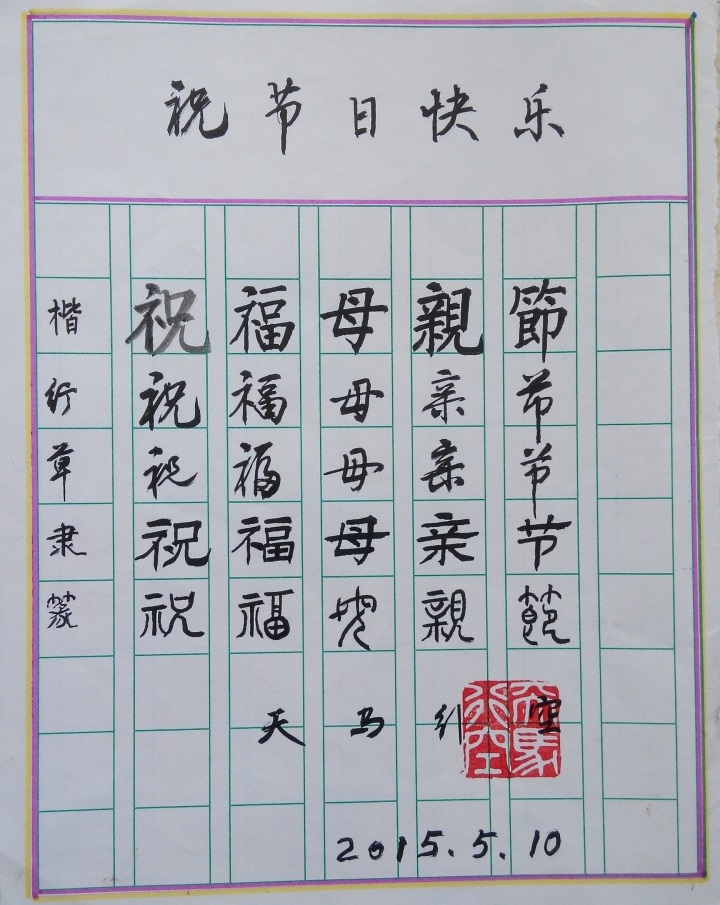 祝节日快乐
楷 祝福母親節
行 祝福母亲节
草 祝福母亲节
隶 祝福母亲节
篆 祝福母親節
天马行空
天馬行空
2015.5.10